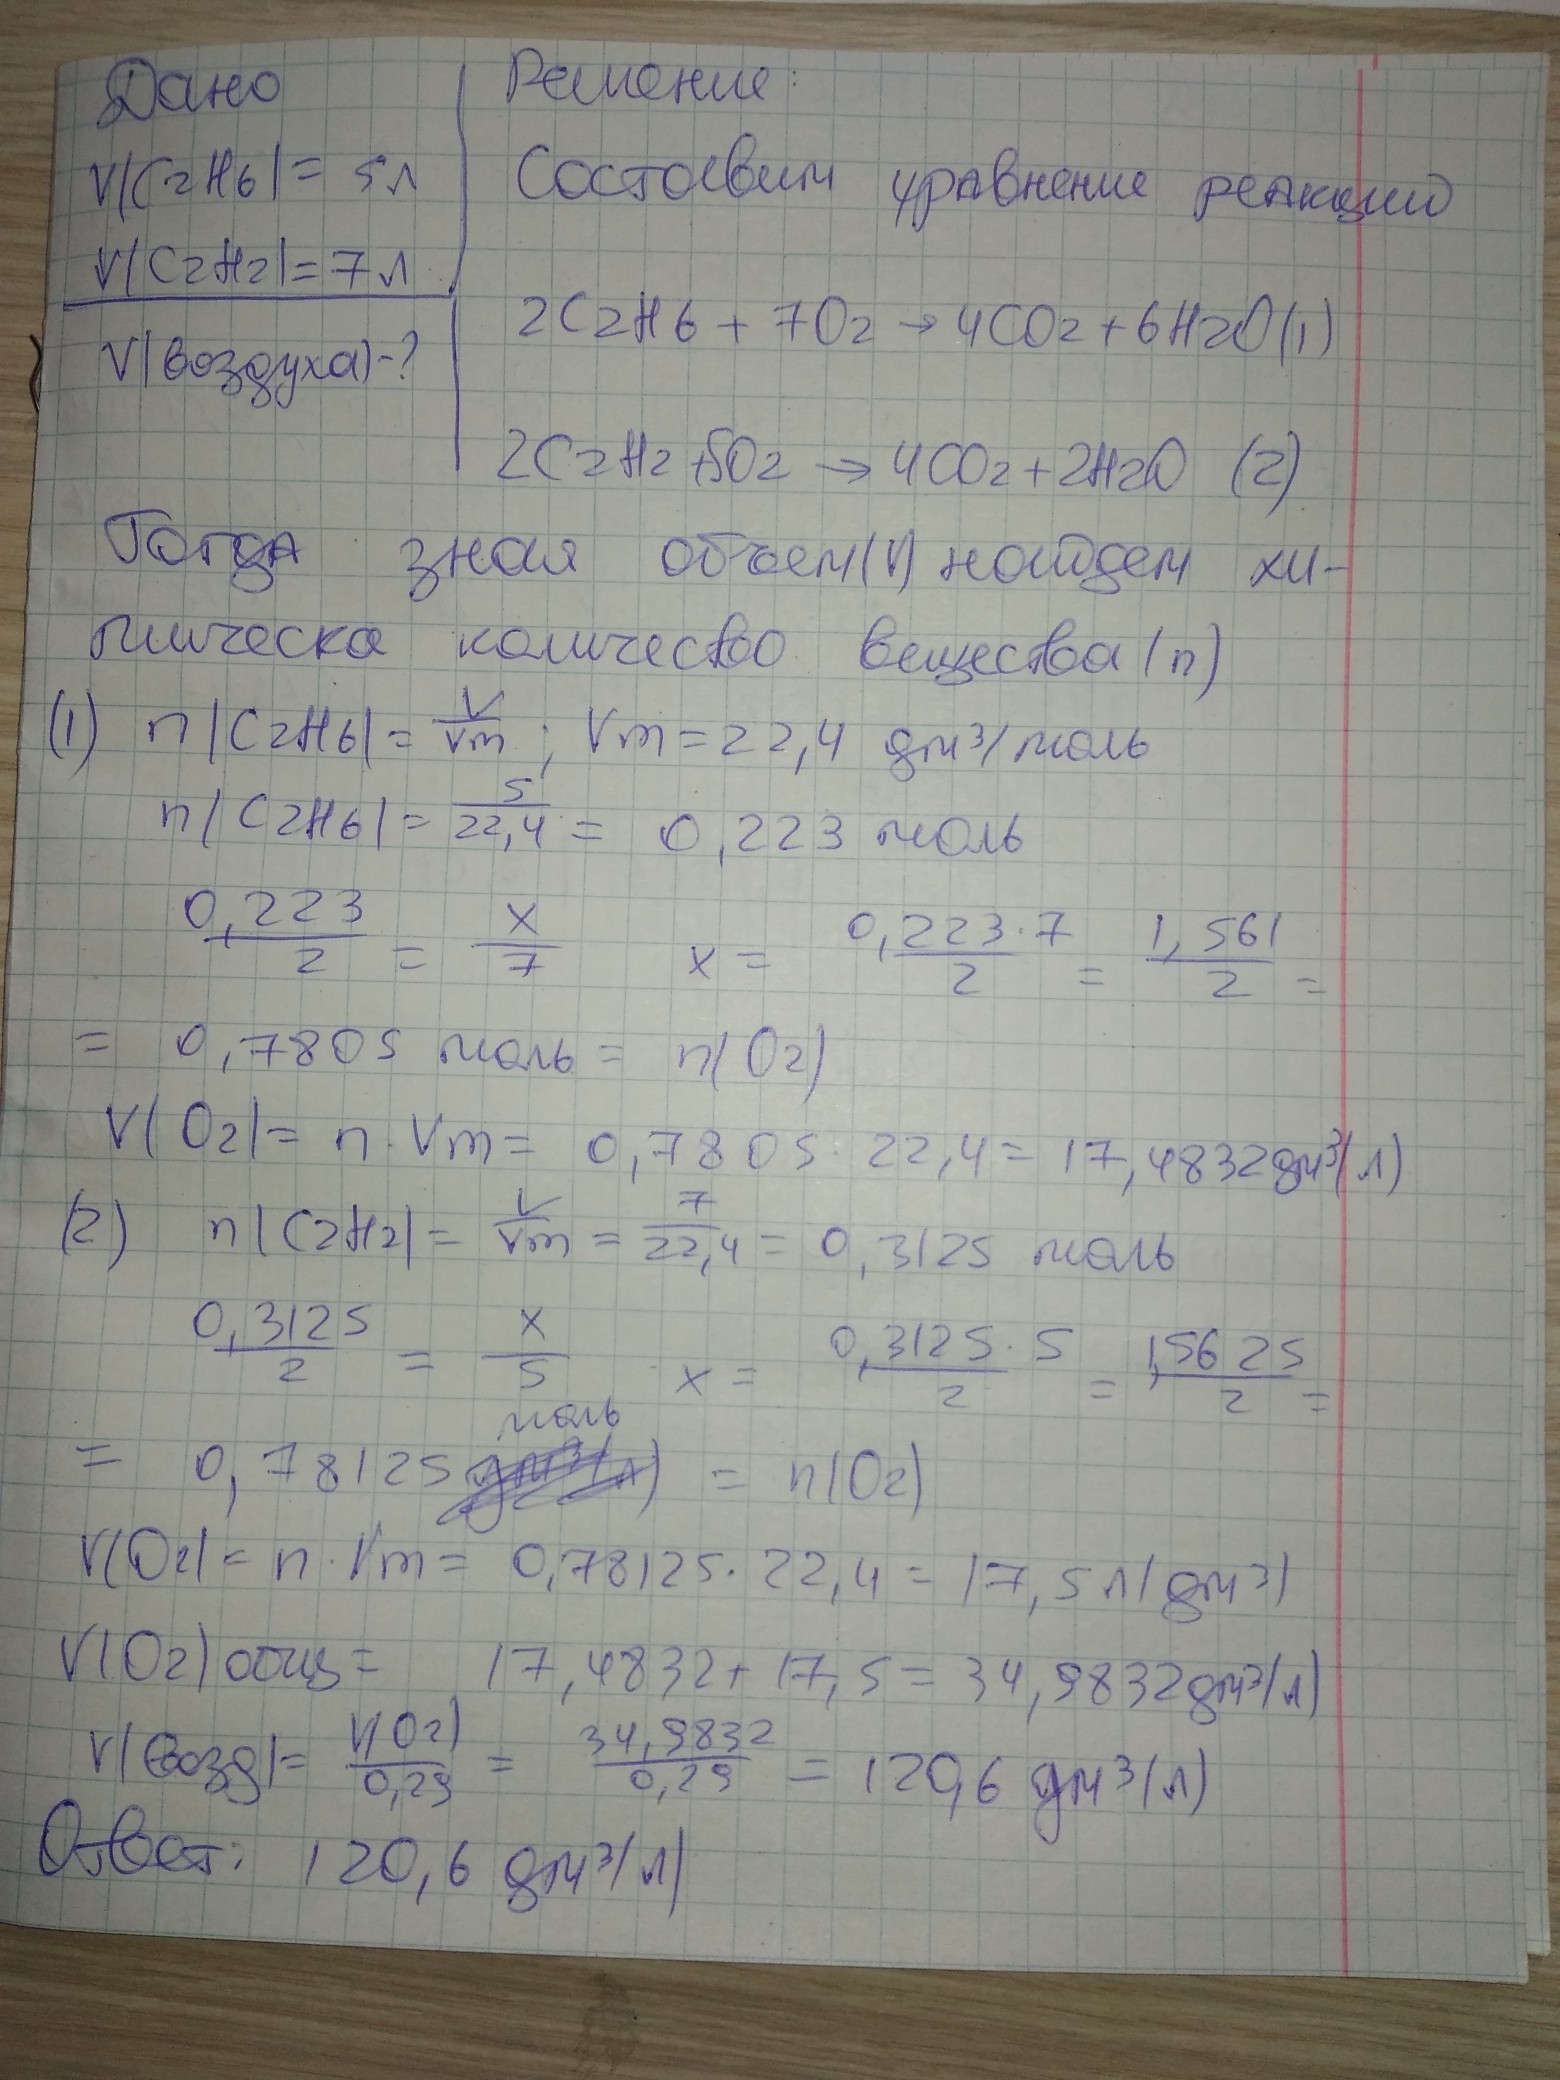 Дано
V(C2H6) = 5л
V(C2H2) = 7л
V(воздуха) - ?
Решение:
Составим уравнение реакции
2C2H6 + 7O2 → 4CO2 + 6H2O (1)
2C2H2 + 5O2 → 4CO2 + 2H2O (2)
Тогда зная объем (V) найдем хи-
мическое количество вещества (n)
(1) n(C2H6) = V/Vm ; Vm = 22,4 дм³/моль
n(C2H6) = 5/22,4 = 0,223 моль
0,223/2 = x/7 x = 0,223·7/2 = 1,561/2 =
= 0,7805 моль = n(O2)
V(O2) = n · Vm = 0,7805 · 22,4 = 17,4832 дм³(л)
(2) n(C2H2) = V/Vm = 7/22,4 = 0,3125 моль
0,3125/2 = x/5 x = 0,3125·5/2 = 1,5625/2 =
= 0,78125 моль = n(O2)
V(O2) = n · Vm = 0,78125 · 22,4 = 17,5 л(дм³)
V(O2) общ = 17,4832 + 17,5 = 34,9832 дм³(л)
V(возд) = V(O2)/0,29 = 34,9832/0,29 = 120,6 дм³(л)
Ответ: 120,6 дм³(л)